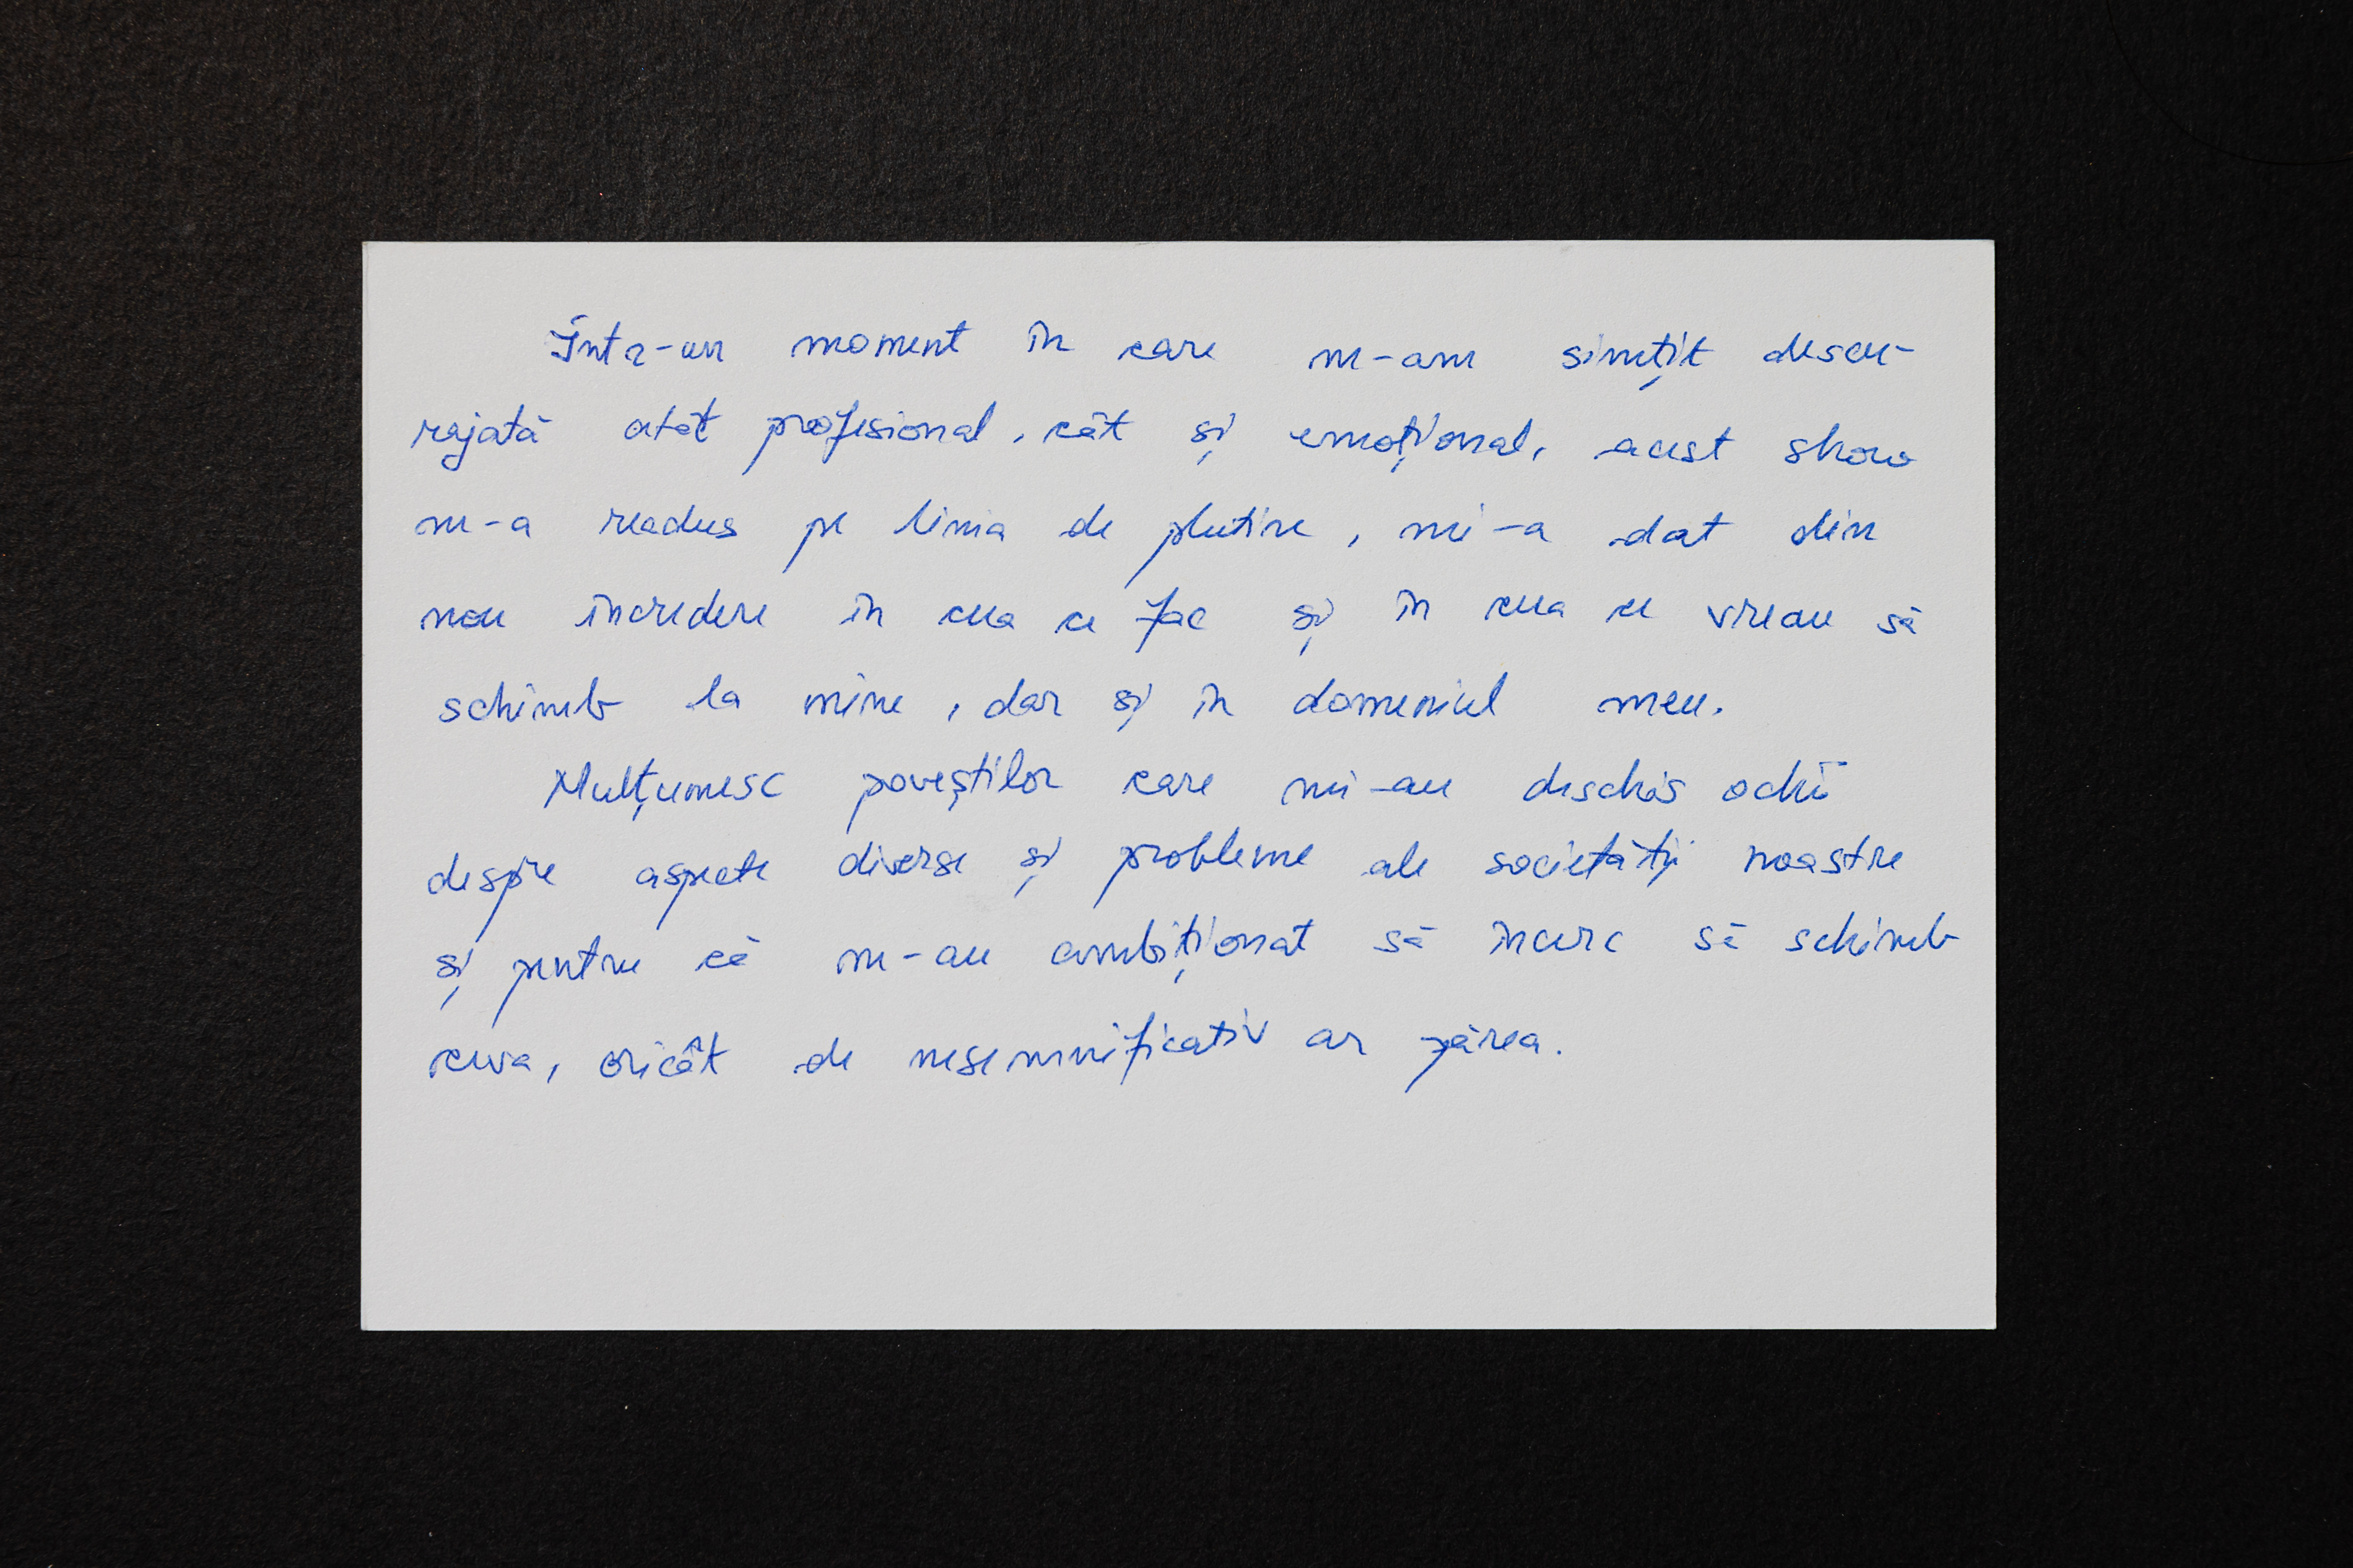 Într-un moment în care m-am simțit descu-
rajată atât profesional, cât și emoțional, acest show
m-a readus pe linia de plutire, mi-a dat din
nou încredere în ceea ce fac și în ceea ce vreau să
schimb la mine, dar și în domeniul meu.
Mulțumesc poveștilor care mi-au deschis ochii
despre aspecte diverse și probleme ale societății noastre
și pentru că m-au ambiționat să încerc să schimb
ceva, oricât de nesemnificativ ar părea.